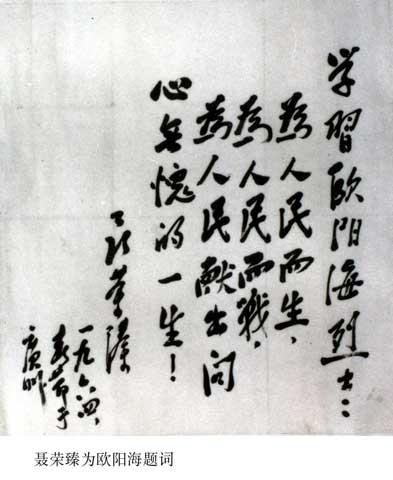 学習欧阳海烈士：
為人民而生，
為人民而戰，
為人民献出问
心無愧的一生！
聂荣臻
一九六四、
春节于
廣州
聂荣臻为欧阳海题词